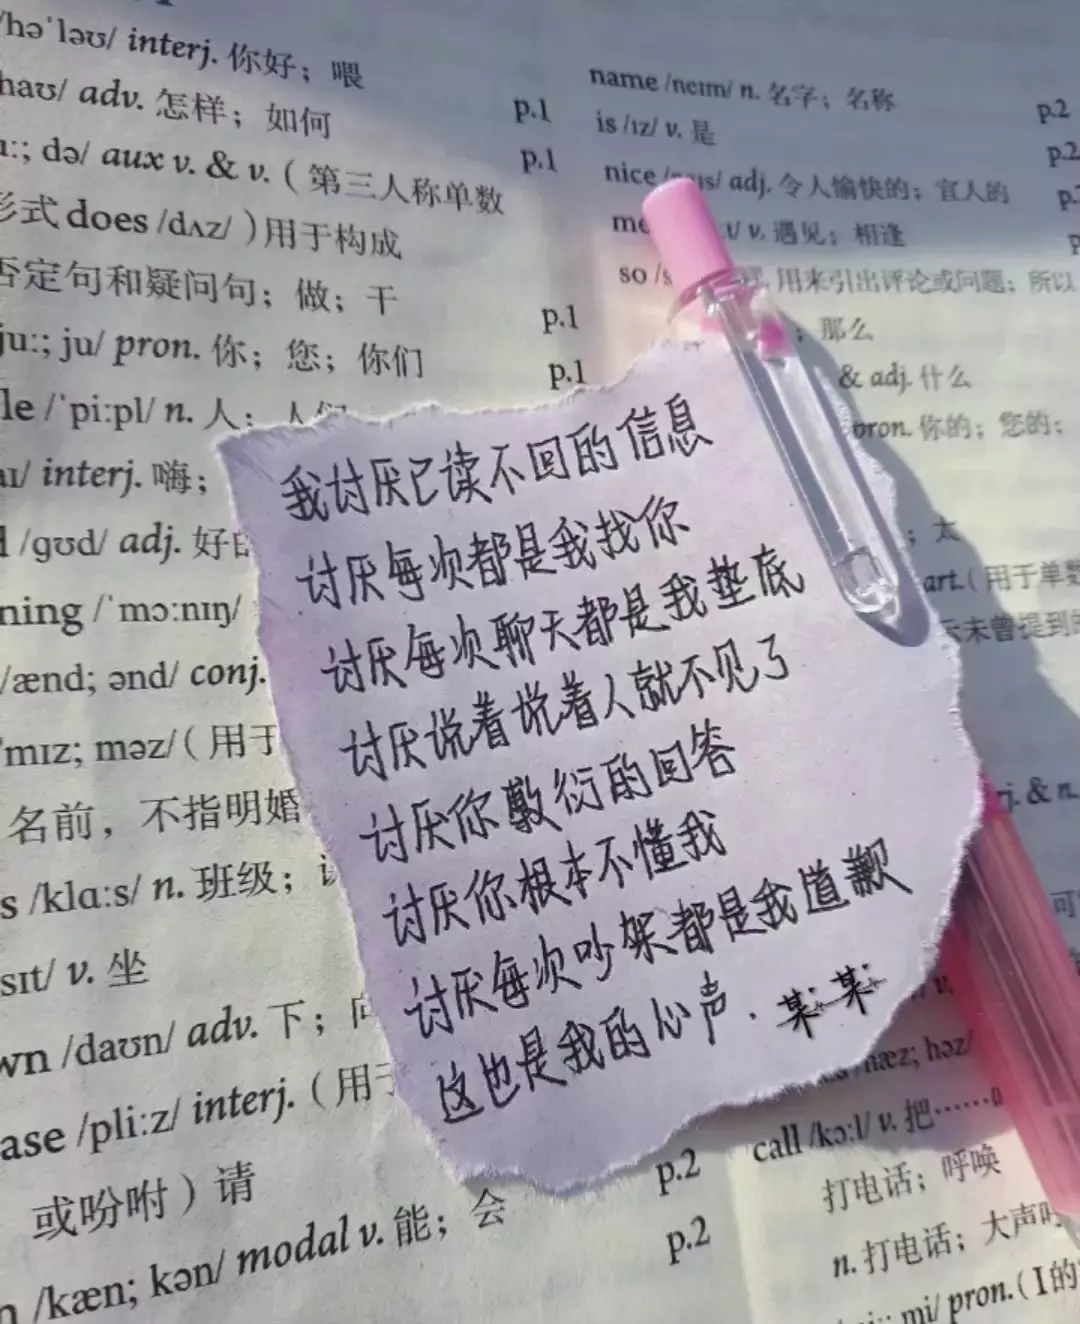 /həˈləʊ/ interj. 你好；喂
haʊ/ adv. 怎样；如何 p.1
ː; də/ aux v. & v.（第三人称单数 p.1
形式 does /dʌz/ ）用于构成
否定句和疑问句；做；干 p.1
juː; ju/ pron. 你；您；你们 p.1
le /ˈpiːpl/ n. 人；人们
aɪ/ interj. 嗨；
/ɡʊd/ adj. 好
ning /ˈmɔːnɪŋ/
/ænd; ənd/ conj.
ˈmɪz; məz/（用于
名前，不指明婚
s /klɑːs/ n. 班级；
sɪt/ v. 坐
wn /daʊn/ adv. 下；向
ase /pliːz/ interj.（用
或吩咐）请 p.2
n /kæn; kən/ modal v. 能；会 p.2
name /neɪm/ n. 名字；名称 p.2
is /ɪz/ v. 是 p.2
nice adj. 令人愉快的；宜人的
me v. 遇见；相逢
so /s 用来引出评论或问题；所以
；那么
& adj. 什么
pron. 你的；您的；
；太
art.（用于单数
示未曾提到的
我讨厌已读不回的信息
讨厌每次都是我找你
讨厌每次聊天都是我垫底
讨厌说着说着人就不见了
讨厌你敷衍的回答
讨厌你根本不懂我
讨厌每次吵架都是我道歉
这也是我的心声. 某某
j. & n.
可
/hæz; həz/
call /kɔːl/ v. 把……
打电话；呼唤
n. 打电话；大声呼
mi/ pron.（I的